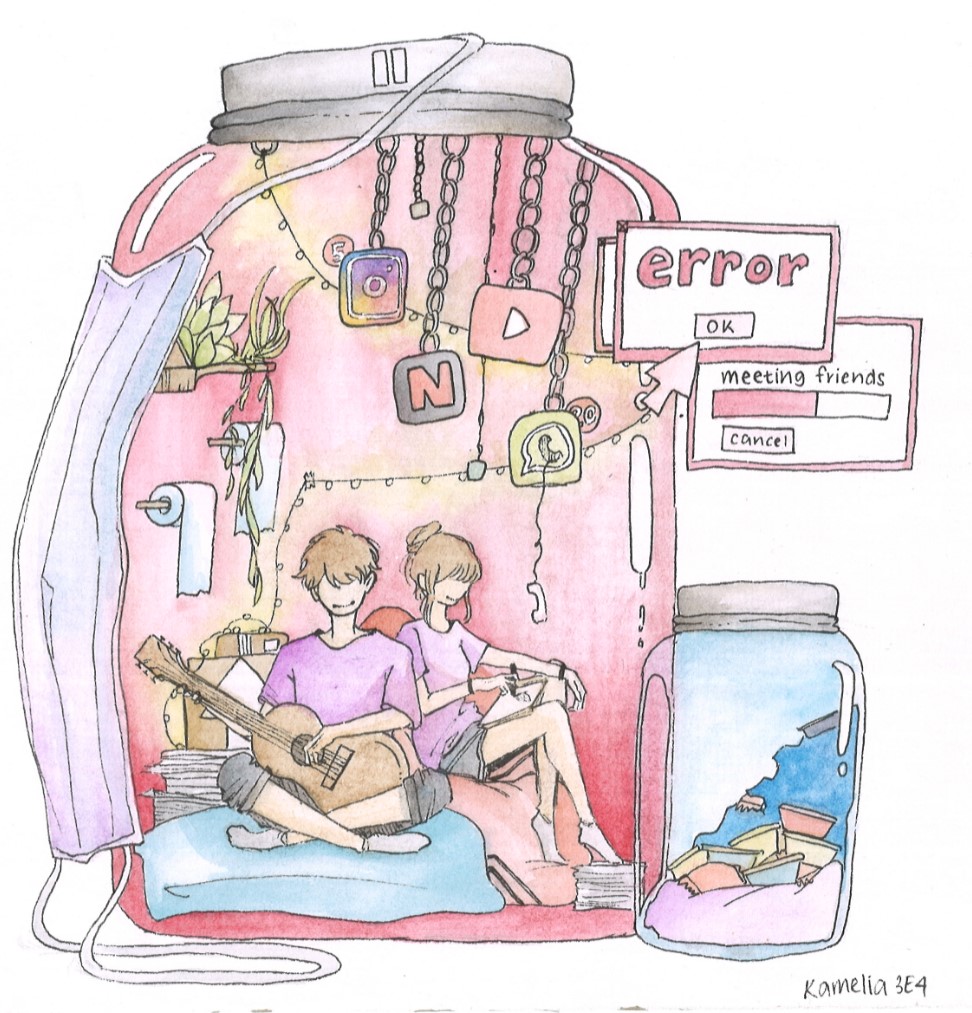 5
N
20
error
OK
meeting friends
cancel
Kamelia 3E4